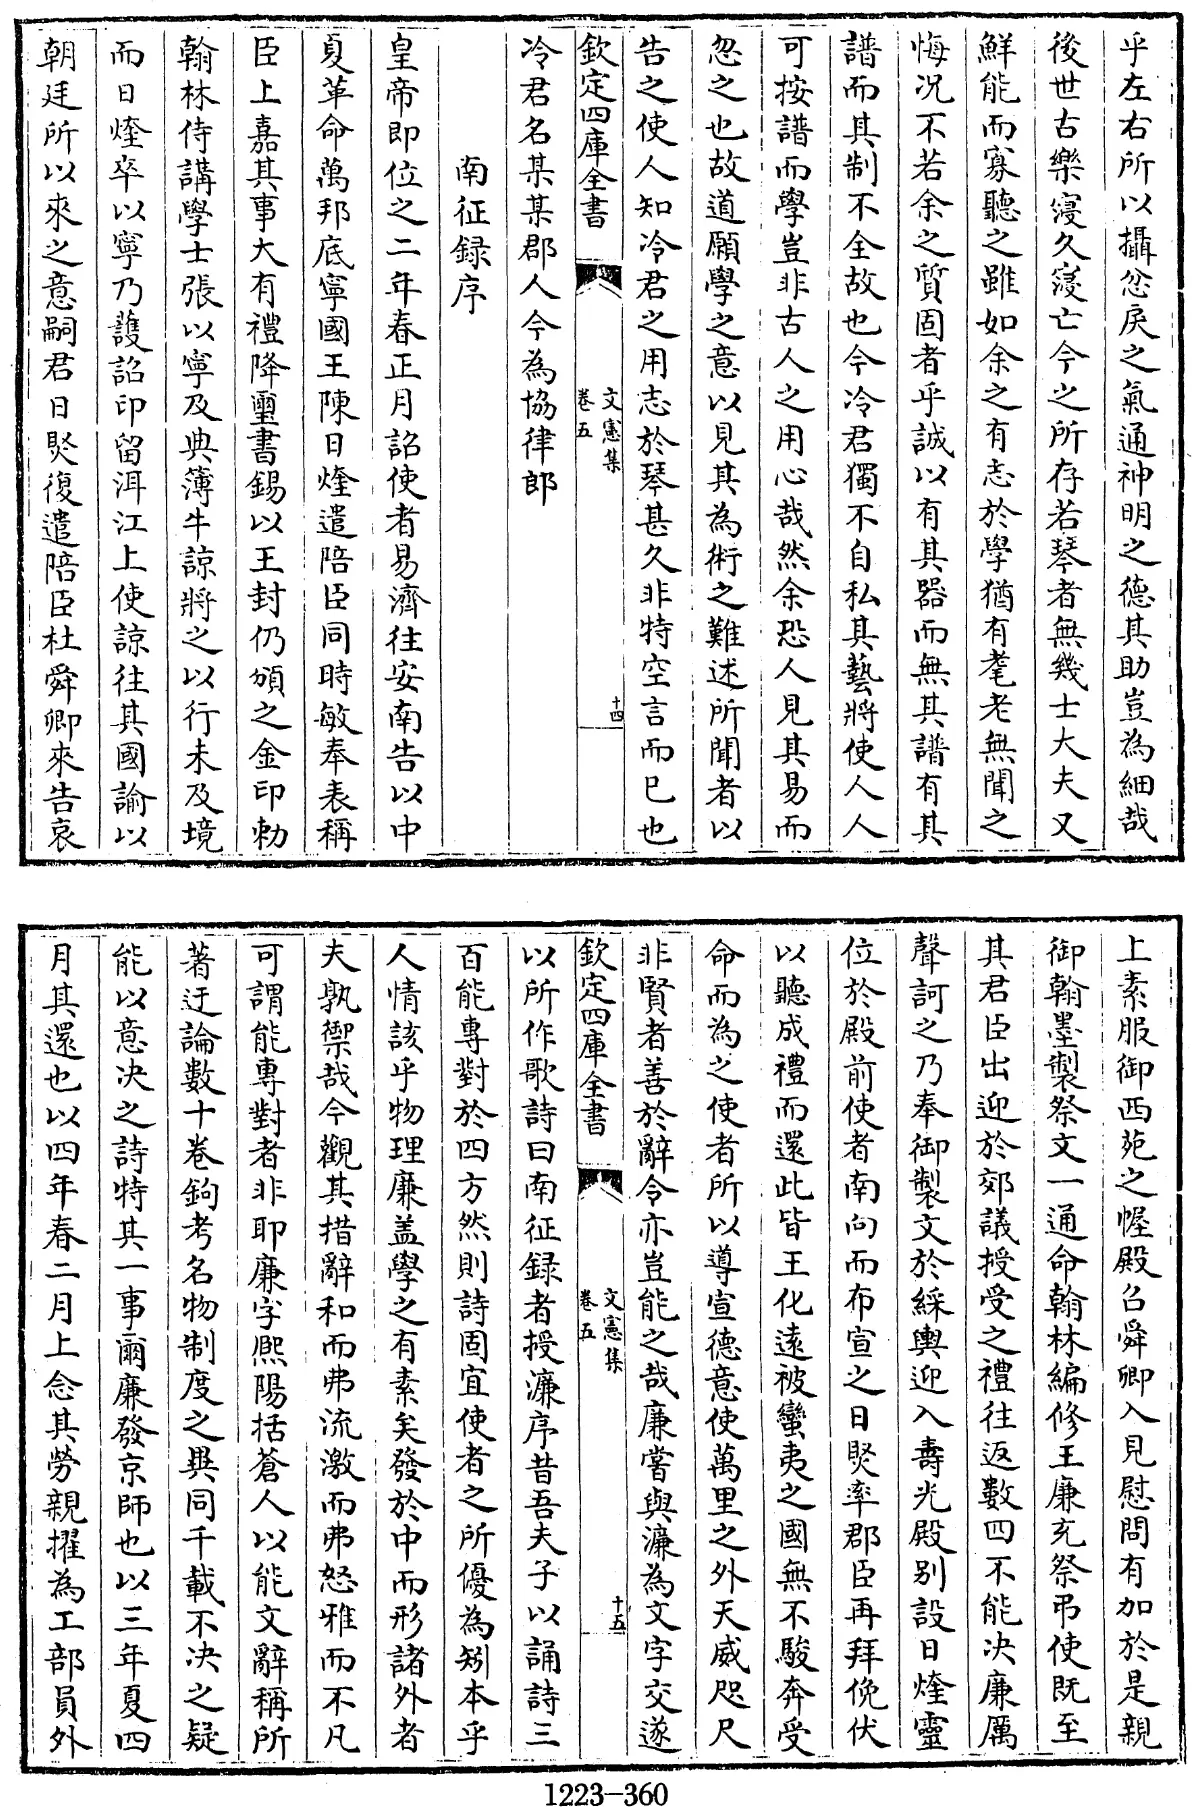 乎左右所以攝忿戾之氣通神明之德其助豈為細哉
後世古樂寖久寖亡今之所存若琴者無幾士大夫又
鮮能而寡聽之雖如余之有志於學猶有耄老無聞之
悔况不若余之質固者乎誠以有其器而無其譜有其
譜而其制不全故也今冷君獨不自私其藝將使人人
可按譜而學豈非古人之用心哉然余恐人見其易而
忽之也故道願學之意以見其為術之難述所聞者以
告之使人知冷君之用志於琴甚久非特空言而已也
欽定四庫全書
文憲集
卷五
十四
冷君名某某郡人今為協律郎
南征録序
皇帝即位之二年春正月詔使者易濟往安南告以中
夏革命萬邦底寧國王陳日煃遣陪臣同時敏奉表稱
臣上嘉其事大有禮降璽書錫以王封仍頒之金印勅
翰林侍講學士張以寧及典簿牛諒將之以行未及境
而日煃卒以寧乃護詔印留洱江上使諒往其國諭以
朝廷所以來之意嗣君日熞復遣陪臣杜舜卿來告哀
上素服御西苑之幄殿召舜卿入見慰問有加於是親
御翰墨製祭文一通命翰林編修王廉充祭弔使既至
其君臣出迎於郊議授受之禮往返數四不能决廉厲
聲訶之乃奉御製文於綵輿迎入壽光殿别設日煃靈
位於殿前使者南向而布宣之日熞率郡臣再拜俛伏
以聽成禮而還此皆王化遠被蠻夷之國無不駿奔受
命而為之使者所以導宣德意使萬里之外天威咫尺
非賢者善於辭令亦豈能之哉廉嘗與濂為文字交遂
欽定四庫全書
文憲集
卷五
十五
以所作歌詩曰南征録者授濂序昔吾夫子以誦詩三
百能專對於四方然則詩固宜使者之所優為矧本乎
人情該乎物理廉盖學之有素矣發於中而形諸外者
夫孰禦哉今觀其措辭和而弗流激而弗怒雅而不凡
可謂能專對者非耶廉字熈陽括蒼人以能文辭稱所
著迂論數十卷鉤考名物制度之異同千載不決之疑
能以意决之詩特其一事爾廉發京師也以三年夏四
月其還也以四年春二月上念其勞親擢為工部員外
1223-360